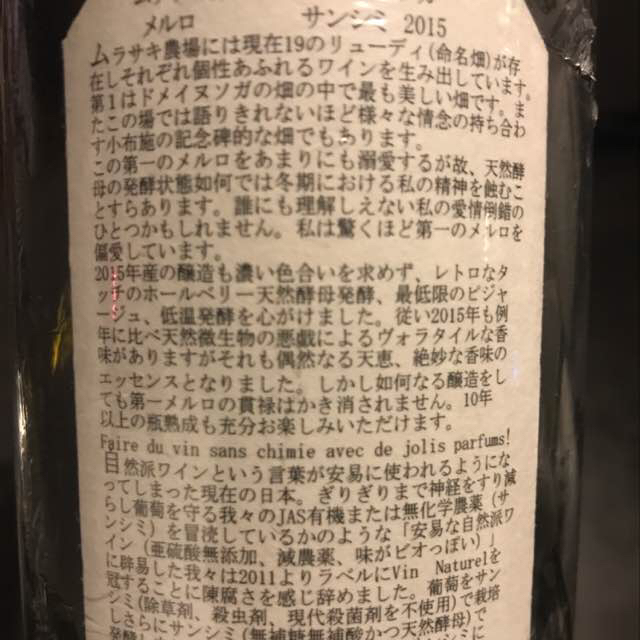 メルロ サンシミ 2015
ムラサキ農場には現在19のリューディ(命名畑)が存
在しそれぞれ個性あふれるワインを生み出しています。
第1はドメイヌソガの畑の中で最も美しい畑です。ま
たこの場では語りきれないほど様々な情念の持ち合わ
す小布施の記念碑的な畑でもあります。
この第一のメルロをあまりにも溺愛するが故、天然酵
母の発酵状態如何では冬期における私の精神を蝕むこ
とすらあります。誰にも理解しえない私の愛情倒錯の
ひとつかもしれません。私は驚くほど第一のメルロを
偏愛しています。
2015年産の醸造も濃い色合いを求めず、レトロなタ
ッチのホールベリー天然酵母発酵、最低限のピジャ
ージュ、低温発酵を心がけました。従い2015年も例
年に比べ天然微生物の悪戯によるヴォラタイルな香
味がありますがそれも偶然なる天恵、絶妙な香味の
エッセンスとなりました。しかし如何なる醸造をし
ても第一メルロの貫禄はかき消されません。10年
以上の瓶熟成も充分お楽しみいただけます。
Faire du vin sans chimie avec de jolis parfums!
自然派ワインという言葉が安易に使われるようにな
ってしまった現在の日本。ぎりぎりまで神経をすり減
らし葡萄を守る我々のJAS有機または無化学農薬(サ
ンシミ)を冒涜しているかのような「安易な自然派ワ
イン(亜硫酸無添加、減農薬、味がビオっぽい)」
に辟易した我々は2011よりラベルにVin Naturelを
冠することに陳腐さを感じ辞めました。葡萄をサン
シミ(除草剤、殺虫剤、現代殺菌剤を不使用)で栽培
しさらにサンシミ(無補糖無補酸かつ天然酵母)で